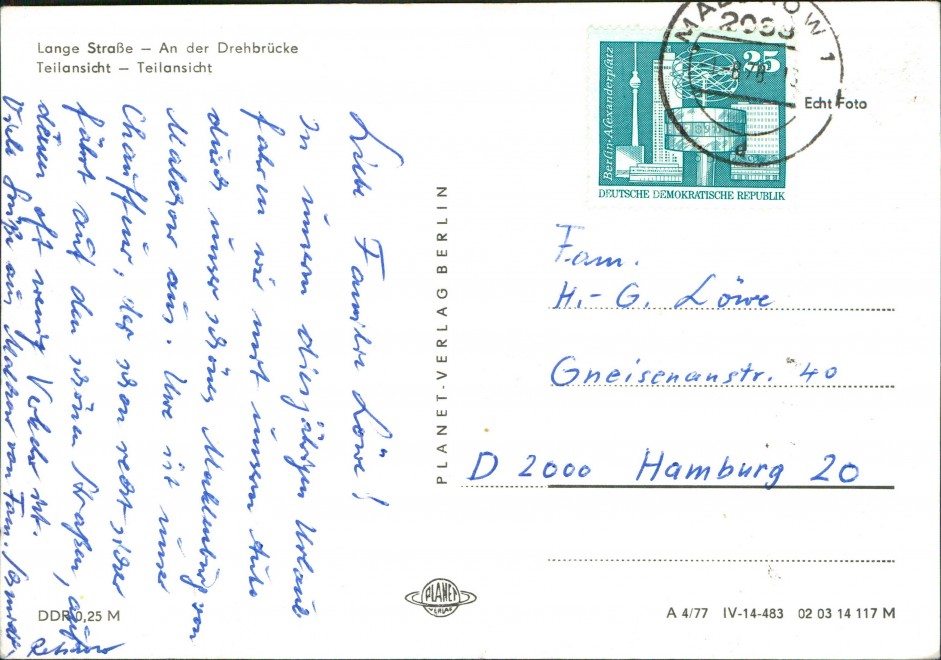 Lange Straße – An der Drehbrücke
Teilansicht – Teilansicht
Liebe Familie Löwe!
In unserm diesjährigen Urlaub
fahren wir mit unserm Auto
durch unser schönes Mecklenburg von
Malchow aus. Uwe ist unser
Chauffeur, der schon recht sicher
fährt auf den schönen Straßen, auf
denen oft wenig Verkehr ist.
Viele Grüße aus Malchow von Fam. Schmidt,
PLANET-VERLAG BERLIN
DDR 0,25 M
PLANET
VERLAG
Berlin-Alexanderplatz
25
DEUTSCHE DEMOKRATISCHE REPUBLIK
MALCHOW 1
2063
78
a
Echt Foto
Fam.
H.-G. Löwe
Gneisenaustr. 40
D 2000 Hamburg 20
A 4/77 IV-14-483 02 03 14 117 M